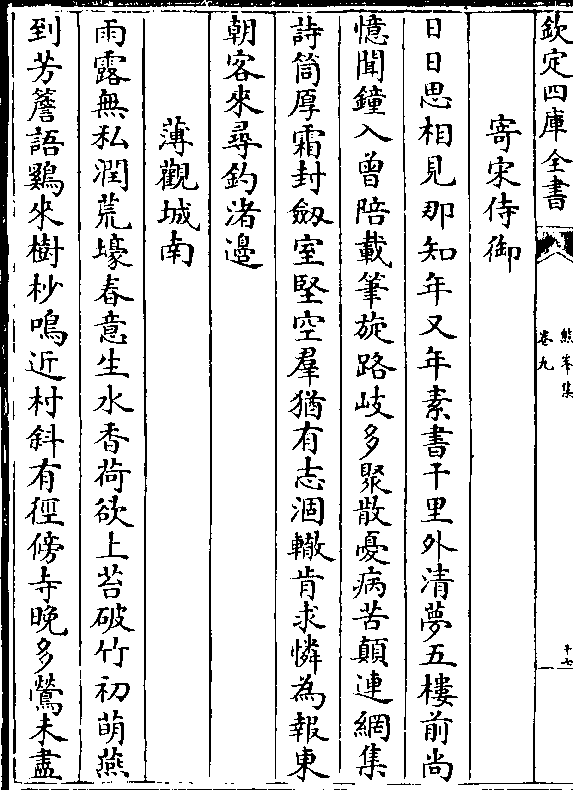 欽定四庫全書
熊峯集
卷九
十七
寄宋侍御
日日思相見那知年又年素書千里外清夢五樓前尚
憶聞鐘入曾陪載筆旋路岐多聚散憂病苦顛連網集
詩筒厚霜封劔室堅空羣猶有志涸轍肯求憐為報東
朝客來尋釣渚邉
薄觀城南
雨露無私潤荒壕春意生水香荷欲上苔破竹初萌燕
到芳簷語鷄來樹杪鳴近村斜有徑傍寺晚多鶯未盡